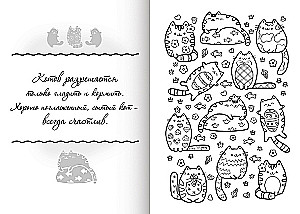 Котов разрешается
только гладить и кормить.
Хорошо поглаженный, сытый кот -
всегда счастлив.